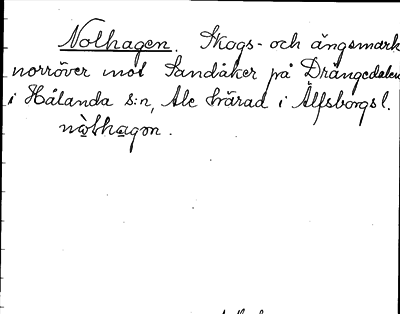 Nolhagen. Skogs- och ängsmark
norröver mot Sandåker på Drängedalen
i Hålanda s:n, Ale härad i Älfsborgs l.